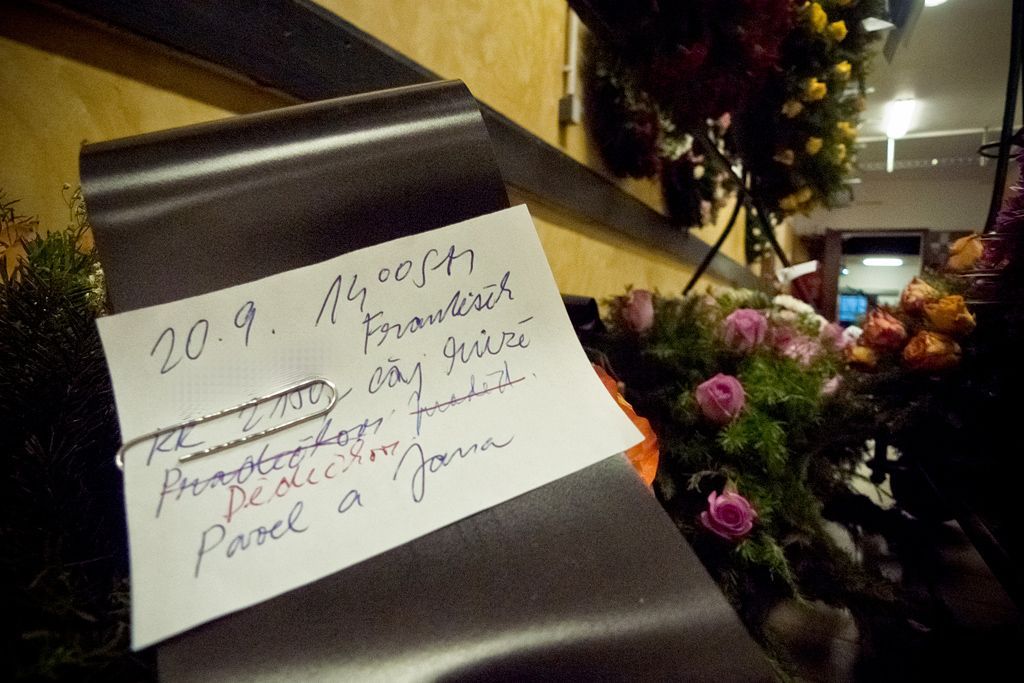 20.9. 14 00 SM
František
KK 2150, čaj růže
Pradědečkovi
Dědečkovi
Pavel a Jana